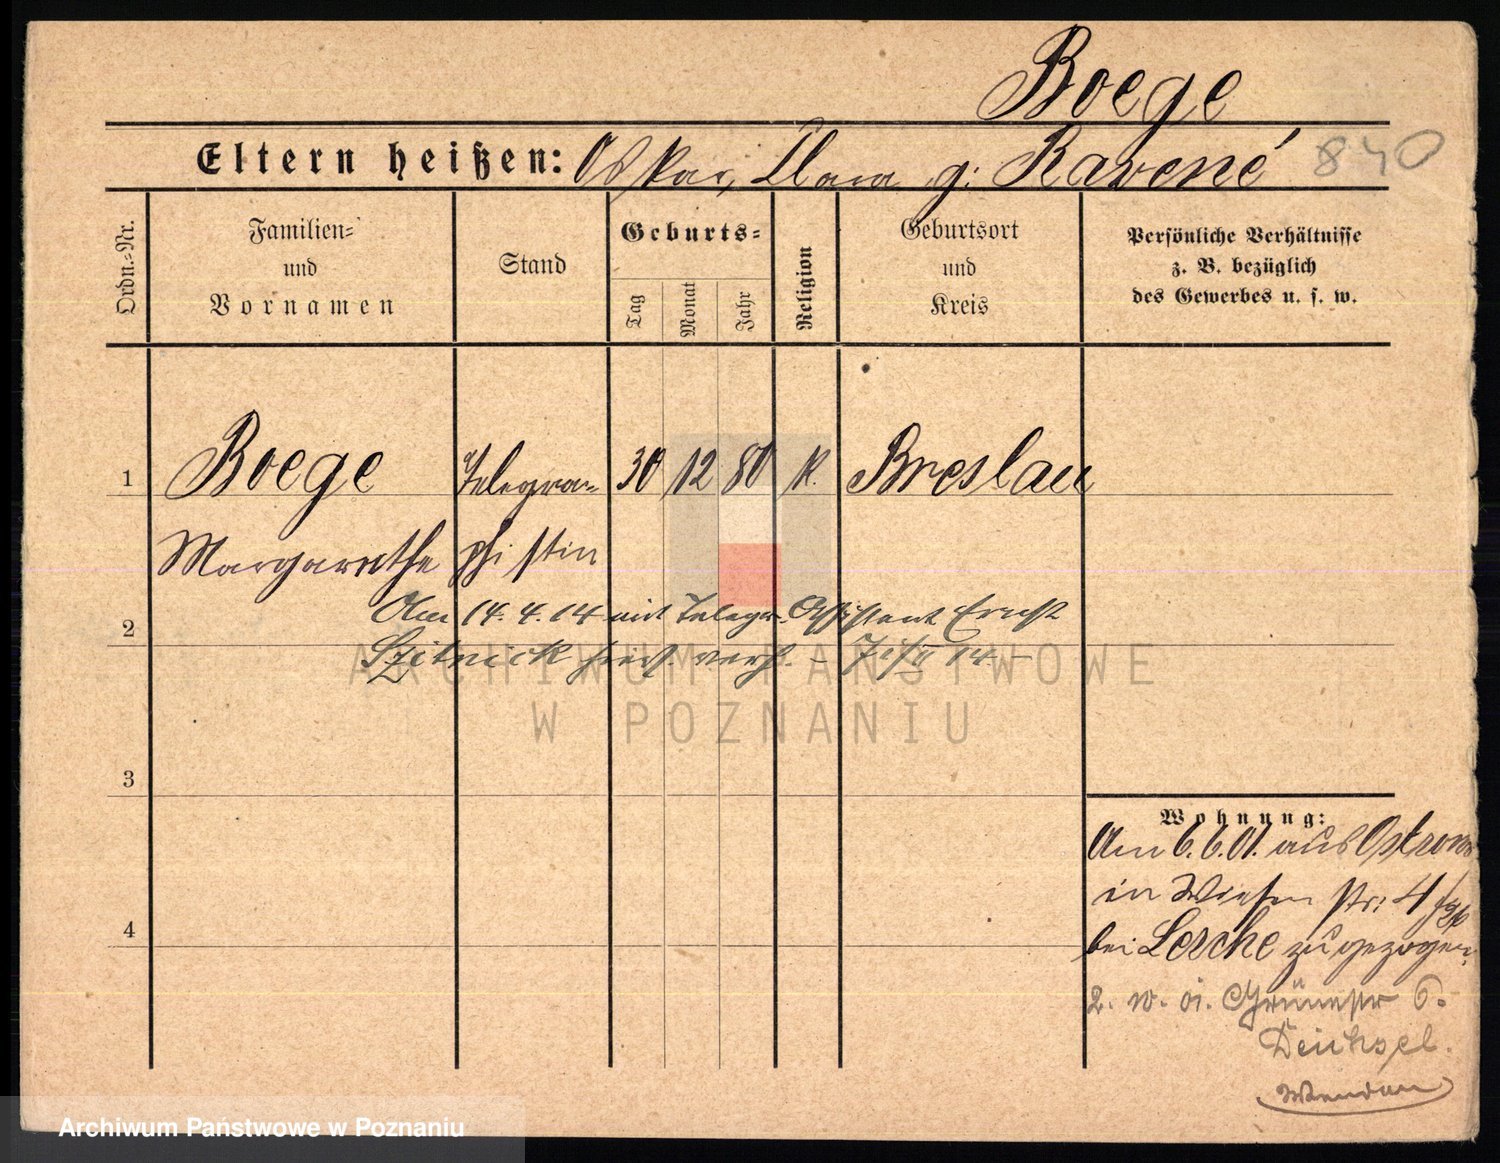 Boege
Eltern heißen: Oskar, Clara g: Ravené
840
Ordn.-Nr.
Familien-
und
Vornamen
Stand
Geburts-
Tag
Monat
Jahr
Religion
Geburtsort
und
Kreis
Persönliche Verhältnisse
z. B. bezüglich
des Gewerbes u. s. w.
1
Boege
Telegra-
30 12 80 k. Breslau
Margarethe
phistin
Am 14. 4. 14 mit Telegr. Assistent Ernst
2
Szitnick hier verh. - 14
ARCHIWUM PAŃSTWOWE
W POZNANIU
3
4
Wohnung:
Am 6. 6. 01. aus Ostrowo
in Wiesen str: 4
bei Lerche zugezogen.
2. 10. 01. Grünestr 6.
Deichsel.
Archiwum Państwowe w Poznaniu